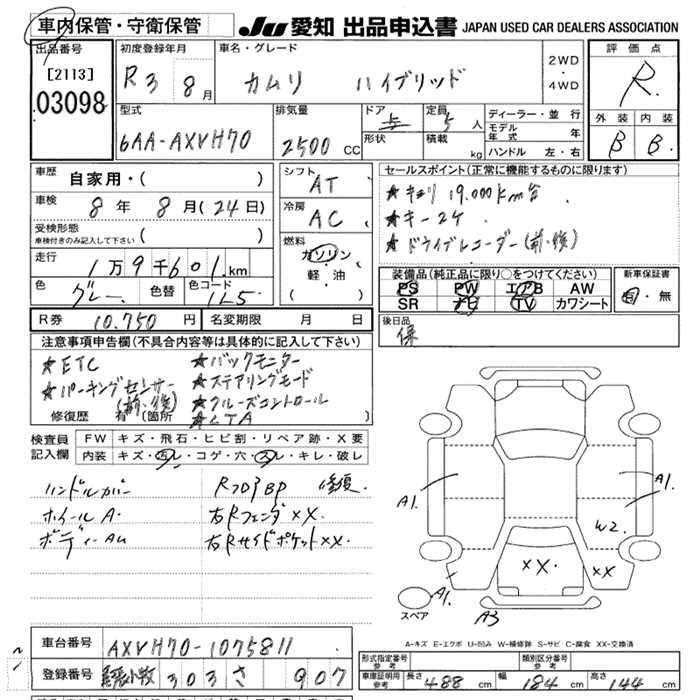 車内保管・守衛保管
JU 愛知 出品申込書 JAPAN USED CAR DEALERS ASSOCIATION
出品番号
[2113]
03098
初度登録年月
R3 8月
車名・グレード
カムリ ハイブリッド
2WD
・
4WD
評価点
R
型式
6AA-AXVH70
排気量
2500 CC
ドア
5
形状
定員
5人
積載
kg
ディーラー・並行
モデル年式 年
ハンドル 左・右
外装 内装
B B
車歴
自家用・( )
車検
8年 8月(24日)
受検形態
車検付きのみ記入して下さい
走行
1万9千601km
色
グレー
色替
色コード
1L5
シフト
AT
冷房
AC
燃料
ガソリン
軽・油
( )
セールスポイント(正常に機能するものに限ります)
★キョリ 19.000km台
★キー2ケ
★ドライブレコーダー(前・後)
装備品(純正品に限り○をつけてください)
PS PW エアB AW
SR ナビ TV カワシート
新車保証書
有・無
R券 10.750円
名変期限 月 日
後日品
保
注意事項申告欄(不具合内容等は具体的に記入して下さい)
★ETC
★パーキングセンサー
(前・後)
★バックモニター
★ステアリングモード
★クルーズコントロール
★LTA
修復歴 有(箇所 )
検査員
記入欄
FW キズ・飛石・ヒビ割・リペア跡・X要
内装 キズ・汚レ・コゲ・穴・スレ・キレ・破レ
ハンドルカバー
ホイールA.
ボディーAU
RフロアBP 修復
右RフェンダXX.
右RサイドポケットXX.
A1.
A1.
W2
XX
XX
A1.
A3
スペア
A-キズ E-エクボ U-凹み W-補修跡 S-サビ C-腐食 XX-交換済
車台番号
AXVH70-1075811
登録番号
303 さ 907
型式指定番号
参考
類別区分番号
参考
車庫証明用
参考
長さ 488 cm 幅 184 cm 高さ 144 cm